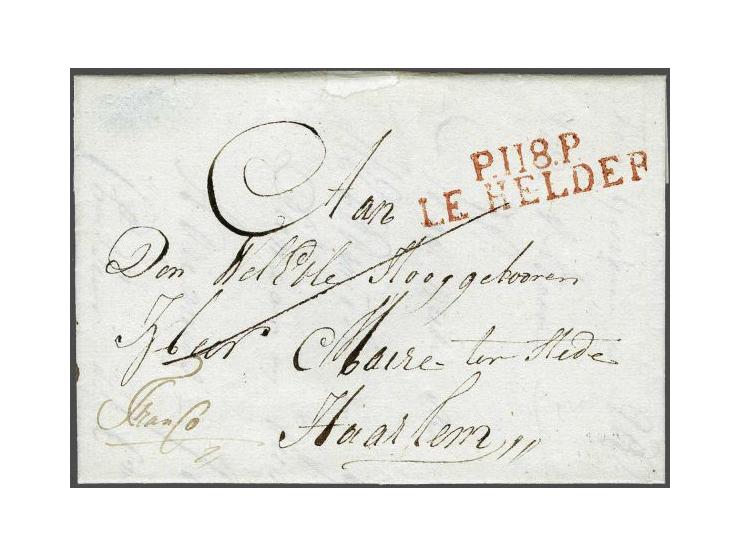 P.118.P
LE HELDER
Aan
Den WelEdle Hooggebooren
Heer Maire ter Stede
Haarlem
Franco